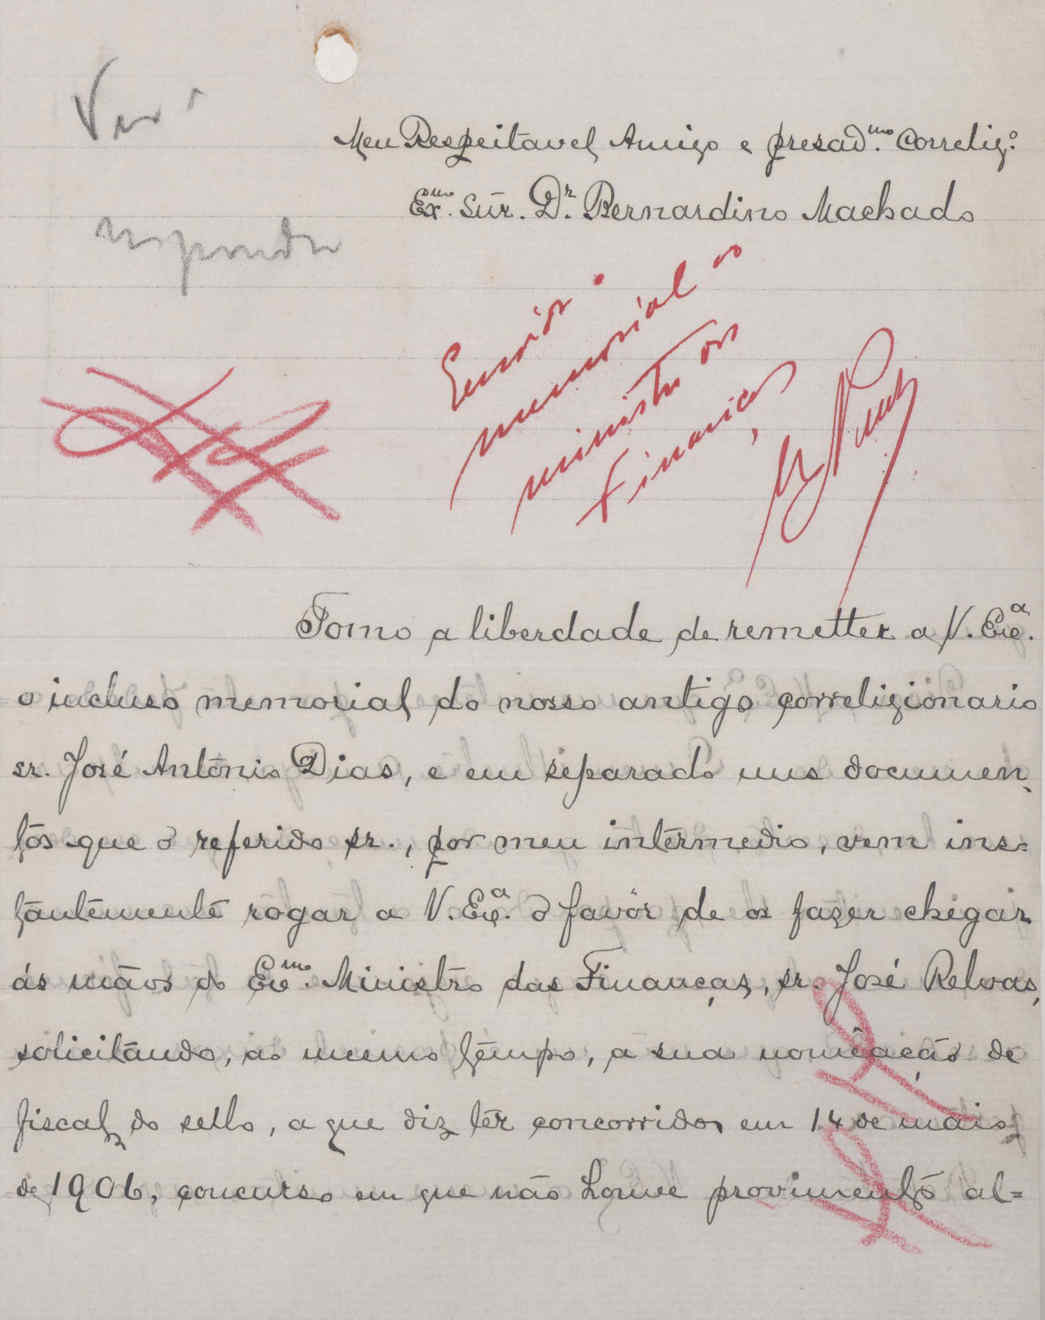 Meu Respeitavel Amigo e presad.mo Correlig.o
Ex.mo Snr. Dr. Bernardino Machado
responda
Enviar
memorial ao
ministro das
Finanças
Tomo a liberdade de remetter a V. Ex.a
o incluso memorial do nosso antigo correligionario
sr. José Antonio Dias, e em separado uns documen-
tos que o referido sr., por meu intermedio, vem ins-
tantemente rogar a V. Ex.a o favor de os fazer chegar
ás mãos do Ex.mo Ministro das Finanças, sr. José Relvas,
solicitando, ao mesmo tempo, a sua nomeação de
fiscal do sello, a que diz ter concorrido em 14 de maio
de 1906, concurso em que não houve provimento al=